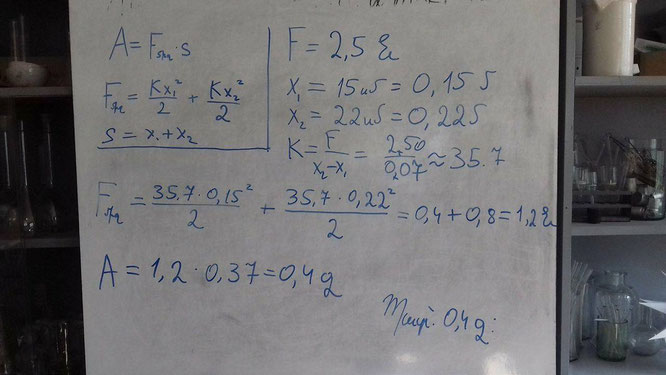 A = F · s
F = Kx₁²/2 + Kx₂²/2
s = x₁ + x₂
F = 2,5 Ն
x₁ = 15սմ = 0,15 մ
x₂ = 22սմ = 0,22մ
K = F/x₂-x₁ = 2,50/0,07 ≈ 35.7
F = 35,7 · 0,15²/2 + 35,7 · 0,22²/2 = 0,4 + 0,8 = 1,2 Ն
A = 1,2 · 0,37 = 0,4 Ջ
0,4 Ջ: